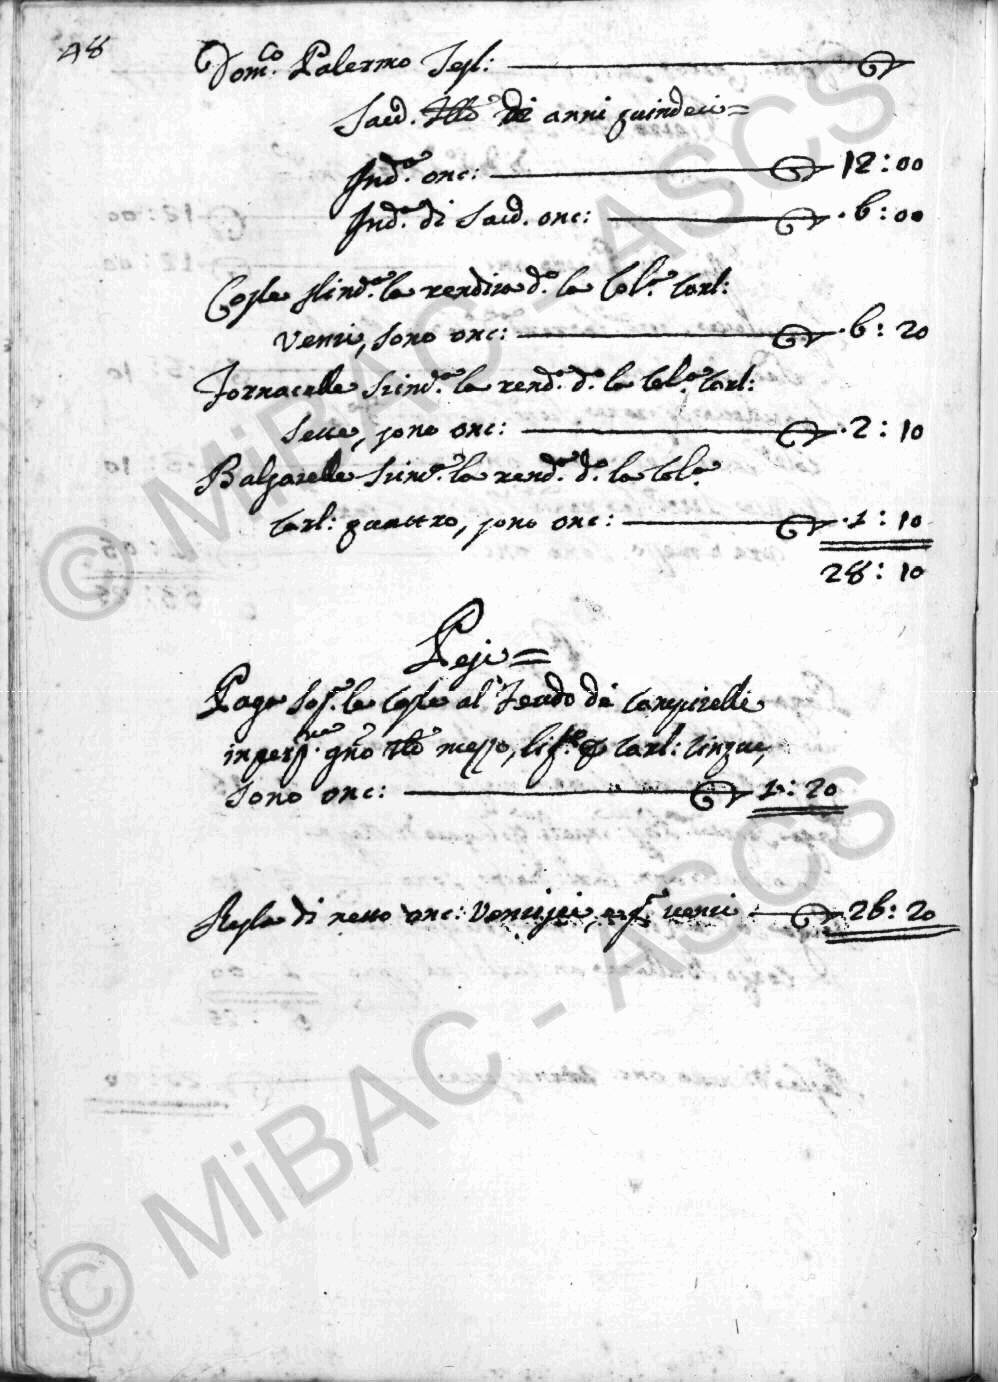 48
Dom.co Palermo Tess:
Saed. Tt.o di anni quindeci=
Ind.a onc: 12:00
Ind.a di Saed. onc: .6:00
Coste stind.a la rendita d. la Col.a Carl:
Venti, sono onc: .6:20
Fornacelle stind.a la rend.a d. la Col.a Carl:
Sette, sono onc: .2:10
Balzarelle stind.a la rend.a d. la Col.a
Carl: quattro, sono onc: .1:10
28:10
Pesi=
Paga sop.a le Coste al Feudo di Campirelli
in grano mezzo, Carl: Cinque,
Sono onc: 1:20
Resta di netto onc: Ventisei, e g.a venti 26:20
© MiBAC - ASCS
© MiBAC - ASCS